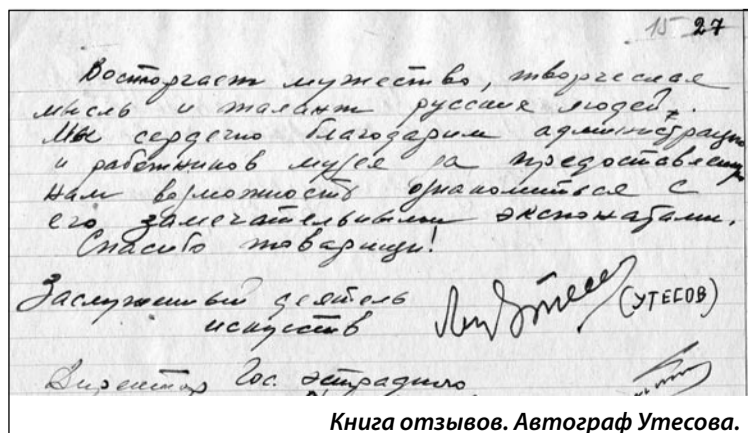 15 27
Восторгает мужество, творческая
мысль и талант русских людей.
Мы сердечно благодарим администрацию
и работников музея за предоставленную
нам возможность ознакомиться с
его замечательными экспонатами.
Спасибо товарищи!
Заслуженный деятель
искусств
(УТЕСОВ)
Директор Гос. эстрадного
Книга отзывов. Автограф Утесова.